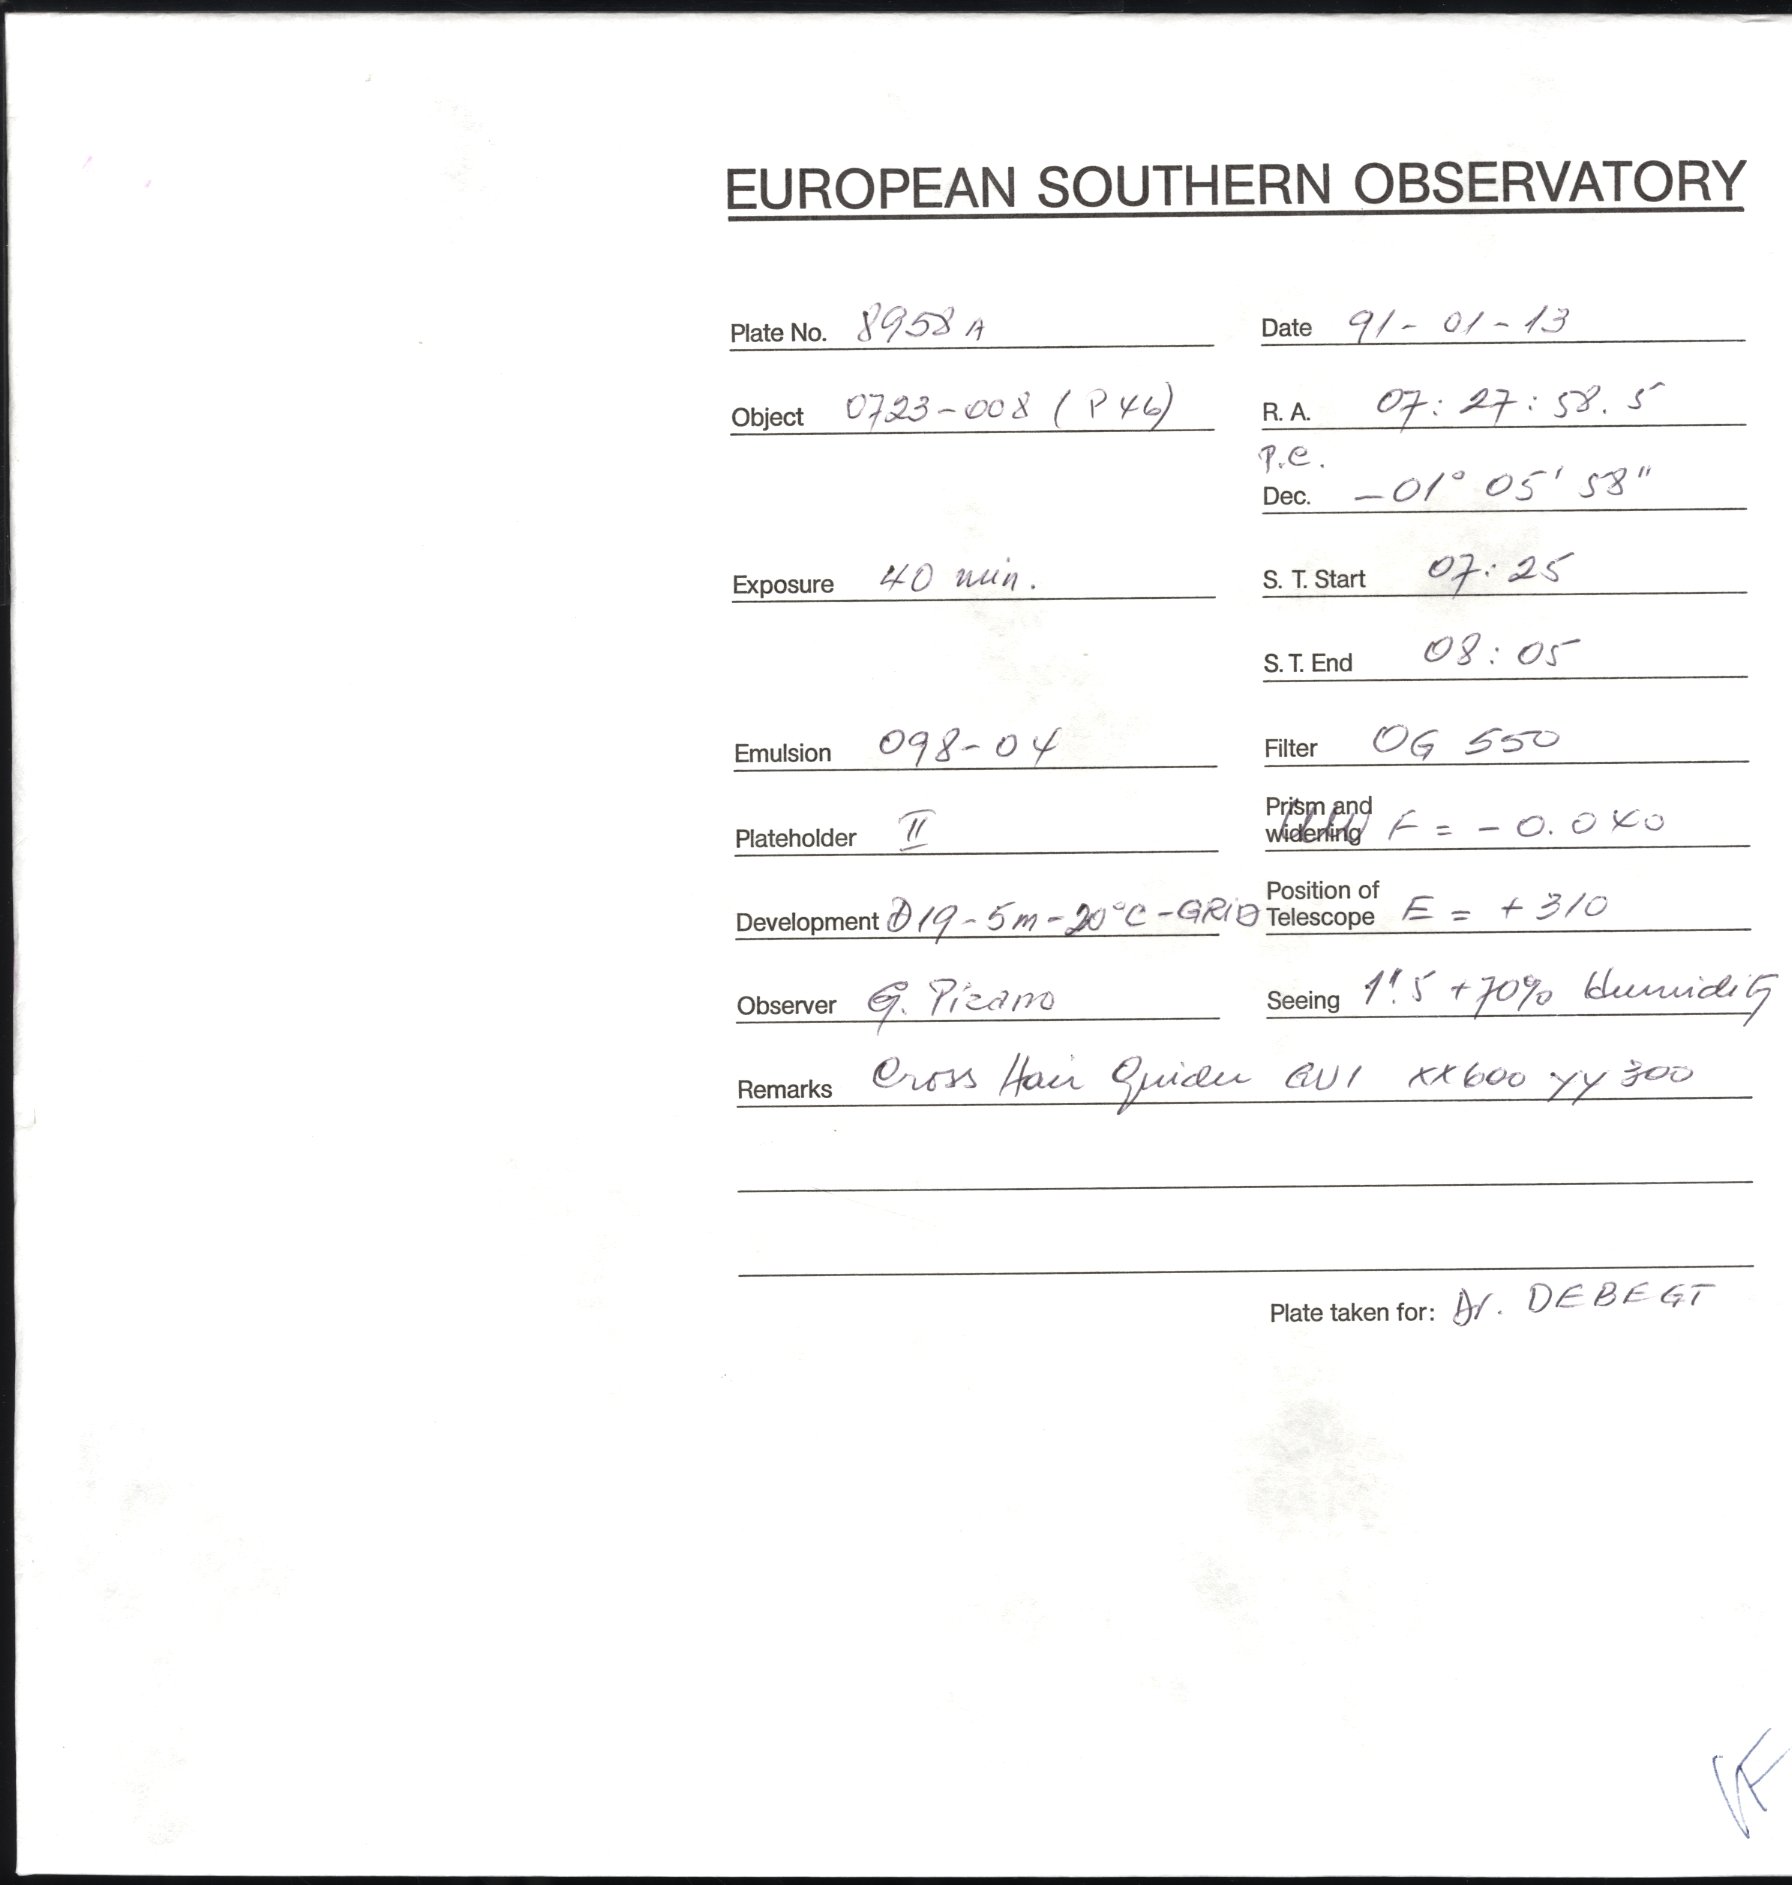 EUROPEAN SOUTHERN OBSERVATORY
Plate No. 8958 A
Date 91-01-13
Object 0723-008 (P46)
R. A. 07:27:58.5
P.C.
Dec. -01° 05' 58"
Exposure 40 min.
S. T. Start 07:25
S. T. End 08:05
Emulsion 098-04
Filter OG 550
Plateholder II
Prism and
widening F = -0.040
Development D19-5m-20°C-GRID
Position of
Telescope E = +310
Observer G. Pizarro
Seeing 1".5 +70% Humidity
Remarks Cross Hair Guider GU1 XX600 YY300
Plate taken for: Dr. DEBEGT